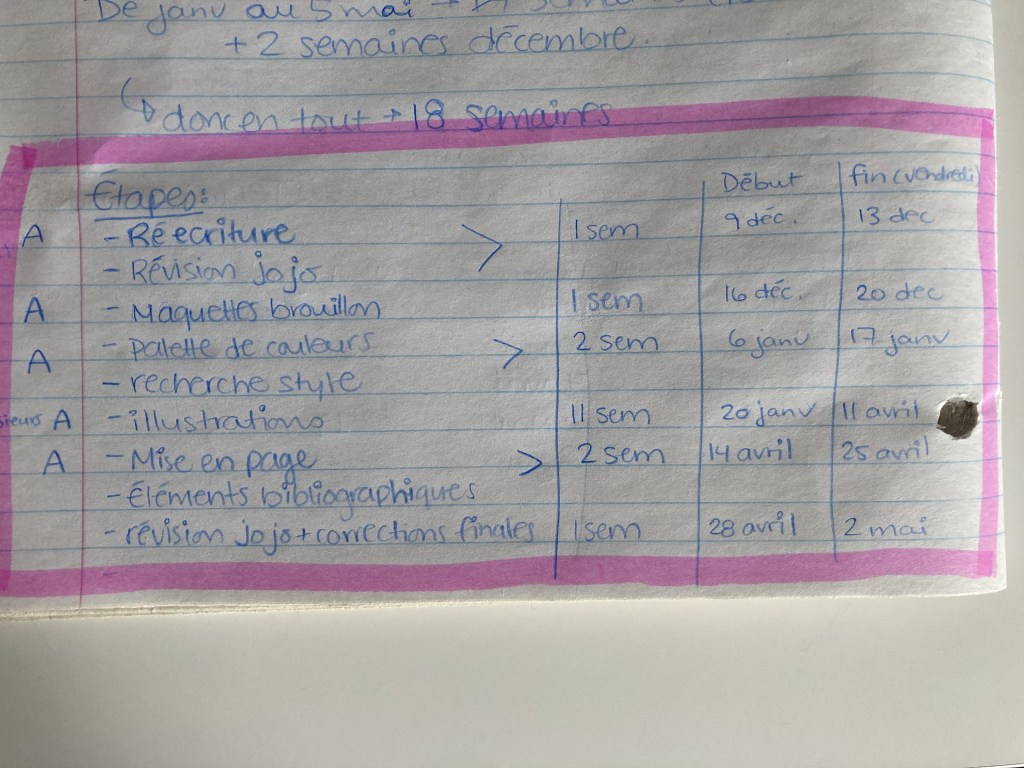 De janv au 5 mai → 17
+ 2 semaines décembre.
↳ donc en tout → 18 semaines
Étapes: Début fin (vendredi)
A - Réecriture > 1 sem 9 déc. 13 dec
- Révision jojo
A - Maquettes brouillon 1 sem 16 déc. 20 dec
A - palette de couleurs > 2 sem 6 janv 17 janv
- recherche style
A - illustrations 11 sem 20 janv 11 avril
A - Mise en page > 2 sem 14 avril 25 avril
- Éléments bibliographiques
- révision jojo + corrections finales 1 sem 28 avril 2 mai